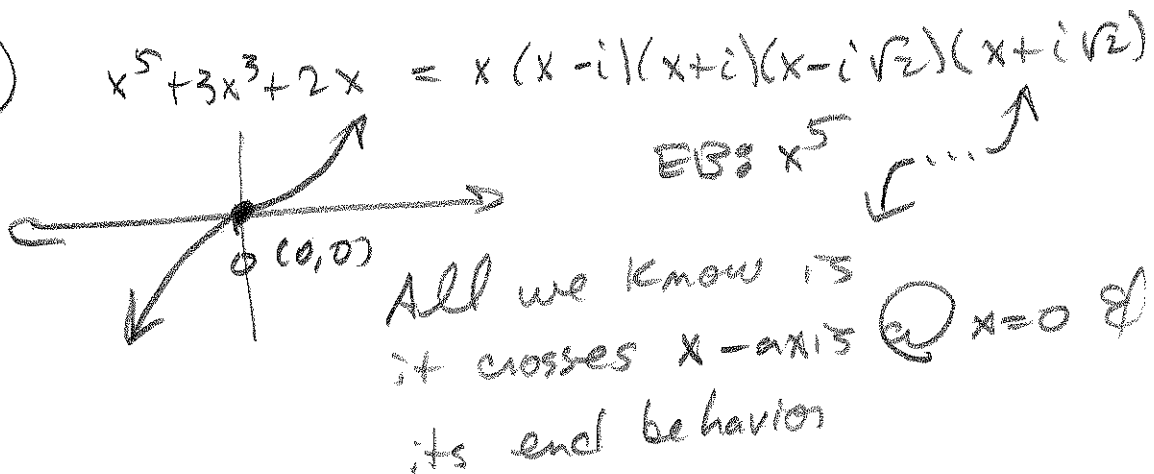 ) x⁵+3x³+2x = x(x-i)(x+i)(x-i√2)(x+i√2)
EB: x⁵
0 (0,0)
All we know is
it crosses x-axis @ x=0 &
its end behavior